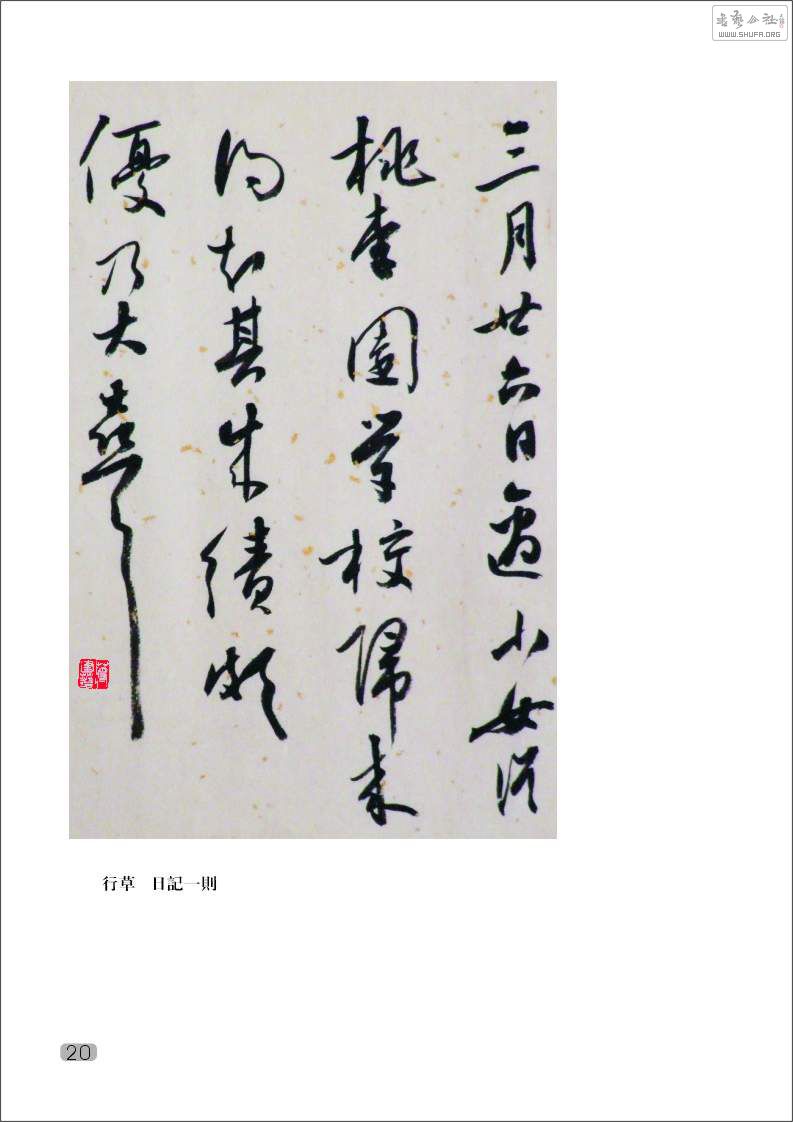 WWW.SHUFA.ORG
三月廿六日適小女從
桃李園学校歸來
得知其朱績頗
優乃大喜
行草　日記一則
20